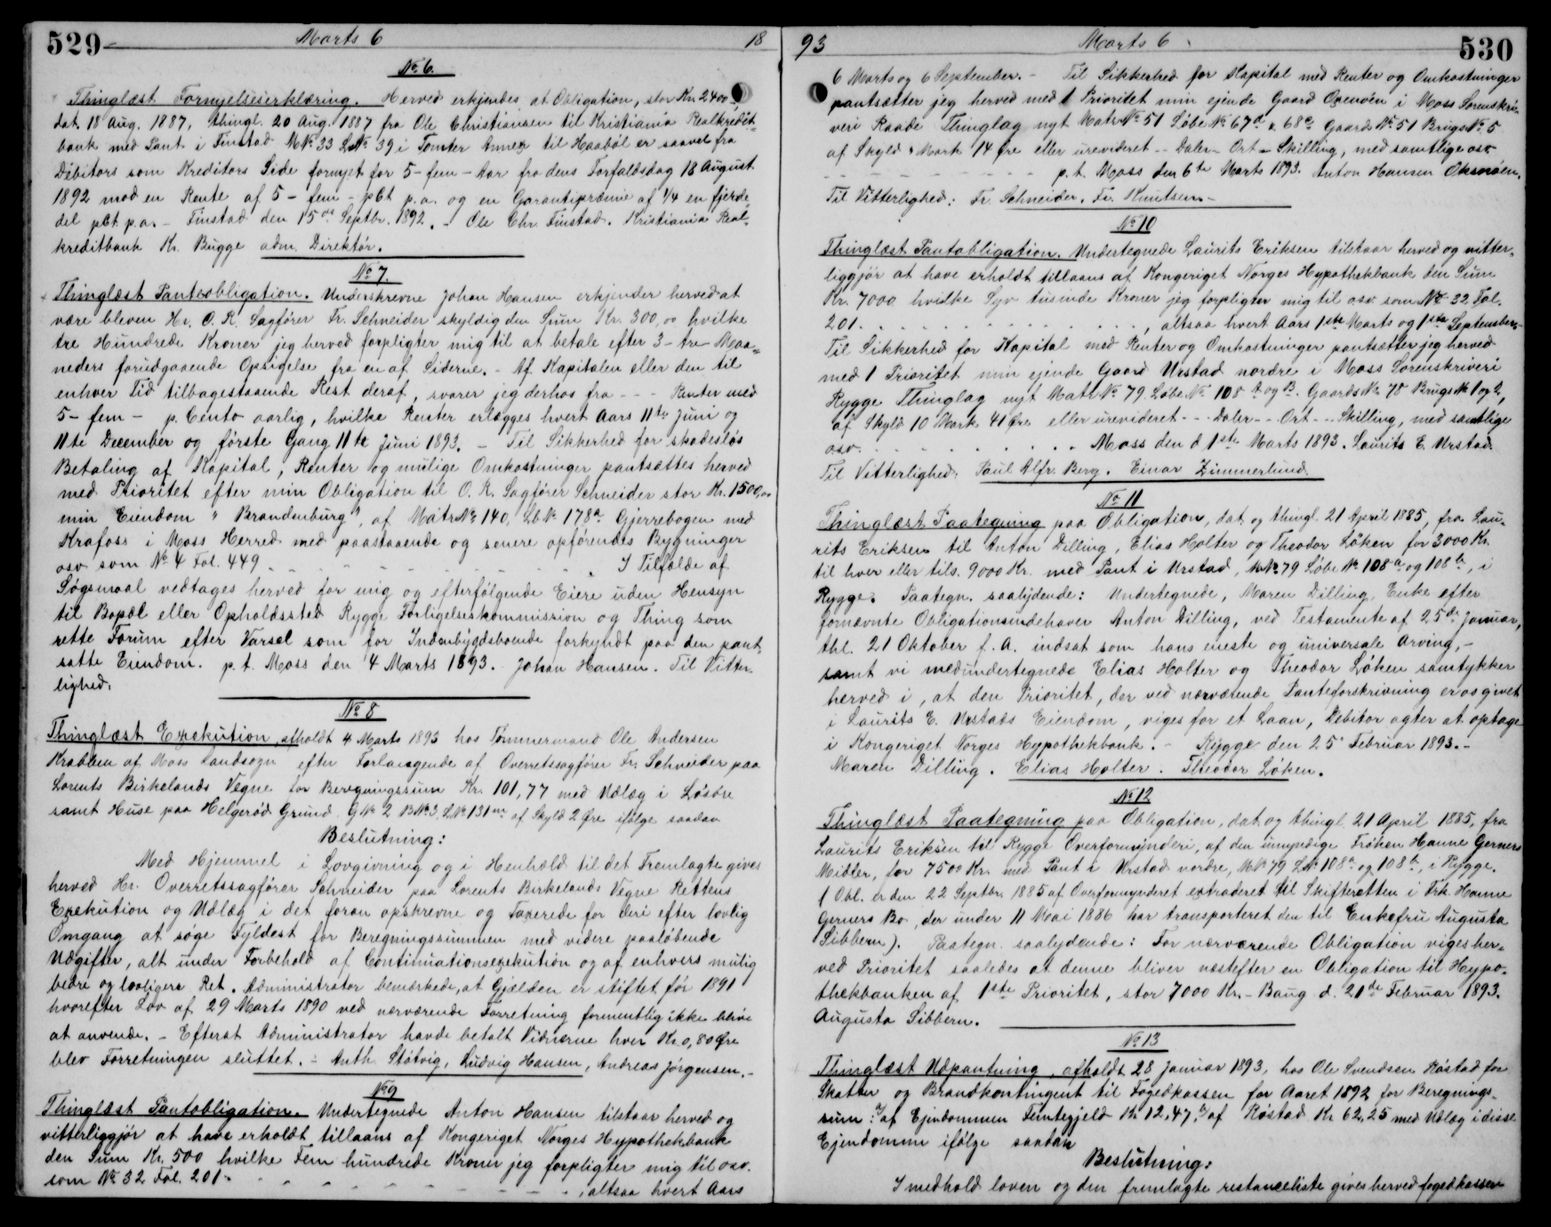 529
Marts 6
18
No 6.
Thinglæst Fornyelseserklæring. Herved erkjendes at Obligation, stor Kr 2400
dat. 18 Aug. 1887, thingl. 20 Aug. 1887 fra Ole Christiansen til Kristiania Realkredit-
bank med Pant i Finstad M No 33 L No 39 i Tomter Annex til Haabøl er saavel fra
Debitors som Kreditors Side fornyet for 5 - fem - Aar fra dens Forfaldsdag 18 August
1892 mod en Rente af 5 - fem - pCt p.a. og en Garantipræmie af 1/4 en fjerde-
del pCt p.a. - Finstad den 15de Septbr. 1892. - Ole Chr. Finstad. Kristiania Real-
kreditbank Kr. Bugge adm. Direktør.
No 7.
Thinglæst Panteobligation. Underskrevne Johan Hansen erkjender herved at
være bleven Hr. O. R. Sagfører Fr. Schneider skyldig den Sum Kr. 300,00 hvilke
tre Hundrede Kroner jeg herved forpligter mig til at betale efter 3 - tre - Maa-
neders forudgaaende Opsigelse fra en af Siderne. - Af Kapitalen eller den til
enhver Tid tilbagestaaende Rest deraf, svarer jeg derhos fra - - - Renter med
5 - fem - p. Cento aarlig, hvilke Renter erlægges hvert Aars 11te Juni og
11te December og første Gang 11te Juni 1893. - Til Sikkerhed for skadesløs
Betaling af Kapital, Renter og mulige Omkostninger pantsættes herved
med Prioritet efter min Obligation til O. R. Sagfører Schneider stor Kr. 1500,00
min Eiendom "Brandenburg", af Matr No 140, Lb No 178a Gjerrebogen med
Krafoss i Moss Herred med paastaaende og senere opførendes Bygninger
osv som No 4 Fol. 449 - - - - - - - - I Tilfælde af
Søgsmaal vedtages herved for mig og efterfølgende Eiere uden Hensyn
til Bopæl eller Opholdssted Rygge Forligelseskommission og Thing som
rette Forum efter Varsel som for Indenbygdsboende forkyndt paa den pant-
satte Eiendom. p. t. Moss den 4 Marts 1893. Johan Hansen. Til Vitter-
lighed:
No 8
Thinglæst Exekution, afholdt 4 Marts 1893 hos Tømmermand Ole Andersen
Krabben af Moss Landsogn efter Forlangende af Overretssagfører Fr. Schneider paa
Lorents Birkelands Vegne for Beregningssum Kr. 101,77 med Udlæg i Løsøre
samt Huse paa Helgerød Grund G No 2 B No 3 L No 131 af Skyld 2 Øre ifølge saadan
Beslutning:
Med Hjemmel i Lovgivning og i Henhold til det Fremlagte gives
herved Hr. Overretssagfører Schneider paa Lorents Birkelands Vegne Rettens
Exekution og Udlæg i det foran opskrevne og Taxerede for deri efter lovlig
Omgang at søge Fyldest for Beregningssummen med videre paaløbende
Udgifter, alt under Forbehold af Continuationsexekution og af enhvers mulig
bedre og lovligere Ret. Administrator bemærkede, at Gjælden er stiftet før 1891
hvorefter Lov af 29 Marts 1890 ved nærværende Forretning formentlig ikke bliver
at anvende. - Efterat Administrator havde betalt Vidnerne hver Kr. 0,80 Øre
blev Forretningen sluttet. - Anth. Støtvig, Ludvig Hansen, Andreas Jørgensen. -
No 9
Thinglæst Pantobligation. Undertegnede Anton Hansen tilstaar herved og
vitterliggjør at have erholdt tillaans af Kongeriget Norges Hypothekbank
den Sum Kr. 500 hvilke Fem hundrede Kroner jeg forpligter mig til osv.
som No 32 Fol. 201. - - - - - - - - altsaa hvert Aars
93
Marts 6
530
6 Marts og 6 September. - Til Sikkerhed for Kapital med Renter og Omkostninger
pantsætter jeg herved med 1 Prioritet min ejende Gaard Oxenöen i Moss Sorenskri-
veri Raade Thinglag nyt Matr No 51 Løbe No 67a & 68a Gaards No 51 Brugs No 5
af Skyld Mark 14 Øre eller urevideret - - Daler - Ort - Skilling, med samtlige osv
- - - - - - - p. t. Moss den 6te Marts 1893. Anton Hansen Oksnöen.
Til Vitterlighed: Fr. Schneider. Fr. Knutsen. -
No 10
Thinglæst Pantobligation. Undertegnede Laurits Eriksen tilstaar herved og vitter-
liggjør at have erholdt tillaans af Kongeriget Norges Hypothekbank den Sum
Kr. 7000 hvilke Syv tusinde Kroner jeg forpligter mig til osv som No 32 Fol.
201. . . . . . . . . . . . . . , altsaa hvert Aars 1ste Marts og 1ste September -
Til Sikkerhed for Kapital med Renter og Omkostninger pantsætter jeg herved
med 1 Prioritet min ejende Gaard Urstad nordre i Moss Sorenskriveri
Rygge Thinglag nyt Matr No 79 Løbe No 108 a og b. Gaards No 78 Brugs No 1 og 2,
af Skyld 10 Mark 41 Øre eller urevideret - - Daler - - Ort - - Skilling, med samtlige
osv. . . . . . . . . . Moss den d 1ste Marts 1893. Laurits E. Urstad.
Til Vitterlighed: Paul Alfr. Berg. Einar Zimmerlund.
No 11
Thinglæst Paategning paa Obligation, dat. og thingl. 21 April 1885, fra Lau-
rits Eriksen til Anton Dilling, Elias Holter og Theodor Løken for 3000 Kr.
til hver eller tils. 9000 Kr. med Pant i Urstad, M No 79 Løbe No 108a og 108b, i
Rygge. Paategn. saalydende: Undertegnede, Maren Dilling, Enke efter
fornævnte Obligationsindehaver Anton Dilling, ved Testamente af 25de Januar,
thl. 21 Oktober f. A. indsat som hans eneste og universale Arving, -
samt vi medundertegnede Elias Holter og Theodor Løken samtykker
herved i, at den Prioritet, der ved nærværende Panteforskrivning er os givet
i Laurits E. Urstads Eiendom, viges for et Laan, Debitor agter at optage
i Kongeriget Norges Hypothekbank. - Rygge den 25 Februar 1893. -
Maren Dilling. Elias Holter. Theodor Løken.
No 12
Thinglæst Paategning paa Obligation, dat. og thingl. 21 April 1885, fra
Laurits Eriksen til Rygge Overformynderi, af den umyndige Frøken Hanne Gerners
Midler, for 7500 Kr. med Pant i Urstad nordre, M No 79 L No 108a og 108b, i Rygge.
( Obl. er den 22 Septbr. 1885 af Overformynderet extraderet til Skifteretten i Frk. Hanne
Gerners Bo, der under 11 Mai 1886 har transporteret den til Enkefru Augusta
Sibbern). Paategn. saalydende: For nærværende Obligation viges her-
ved Prioritet saaledes at denne bliver næstefter en Obligation til Hypo-
thekbanken af 1ste Prioritet, stor 7000 Kr. - Baug d. 21de Februar 1893.
Augusta Sibbern.
No 13
Thinglæst Udpantning, afholdt 28 Januar 1893, hos Ole Svendsen Røstad for
Skatter og Brandkontingent til Fogedkassen for Aaret 1892 for Beregnings-
sum: af Ejendommen Tomtegjeld Kr 12,47, af Røstad Kr 62,25 med Udlæg i disse
Ejendomme ifølge saadan
Beslutning:
I medhold loven og den fremlagte restanceliste gives herved fogedkassen